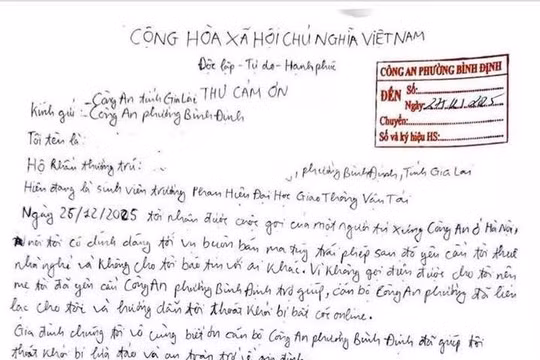 CỘNG HÒA XÃ HỘI CHỦ NGHĨA VIỆT NAM
Độc lập - Tự do - Hạnh phúc
THƯ CẢM ƠN
CÔNG AN PHƯỜNG BÌNH ĐỊNH
ĐẾN Số:
Ngày:
Chuyển:
Số và ký hiệu HS:
Kính gửi: - Công An tỉnh Gia Lai
- Công An phường Bình Định
Tôi tên là:
Hộ khẩu thường trú: , phường Bình Định, Tỉnh Gia Lai
Hiện đang là sinh viên trường Phân Hiệu Đại Học Giao Thông Vận Tải
Ngày 25/12/2025 tôi nhận được cuộc gọi của một người tự xưng Công An ở Hà Nội,
nói tôi có dính dáng tới vụ buôn bán ma túy trái phép sau đó yêu cầu tôi thuê
nhà nghỉ và không cho tôi báo tin với ai khác. Vì không gọi điện được cho tôi nên
mẹ tôi đã yêu cầu Công An phường Bình Định trợ giúp, cán bộ Công An phường đã liên
lạc cho tôi và hướng dẫn tôi thoát khỏi bị bắt cóc online.
Gia đình chúng tôi vô cùng biết ơn cán bộ Công An phường Bình Định đã giúp tôi
thoát khỏi bị lừa đảo và an toàn trở về gia đình.